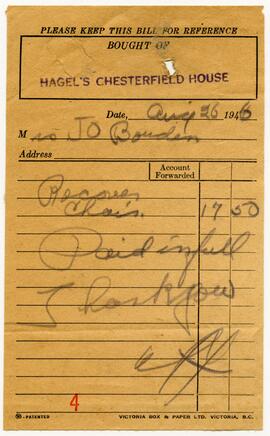 PLEASE KEEP THIS BILL FOR REFERENCE
BOUGHT OF
HAGEL'S CHESTERFIELD HOUSE
Date, Aug 26 1946
M rs J O Bowden
Address
Account
Forwarded
Recover
Chair. 17 50
Paid in full
Thank you
4
PATENTED VICTORIA BOX & PAPER LTD. VICTORIA, B.C.